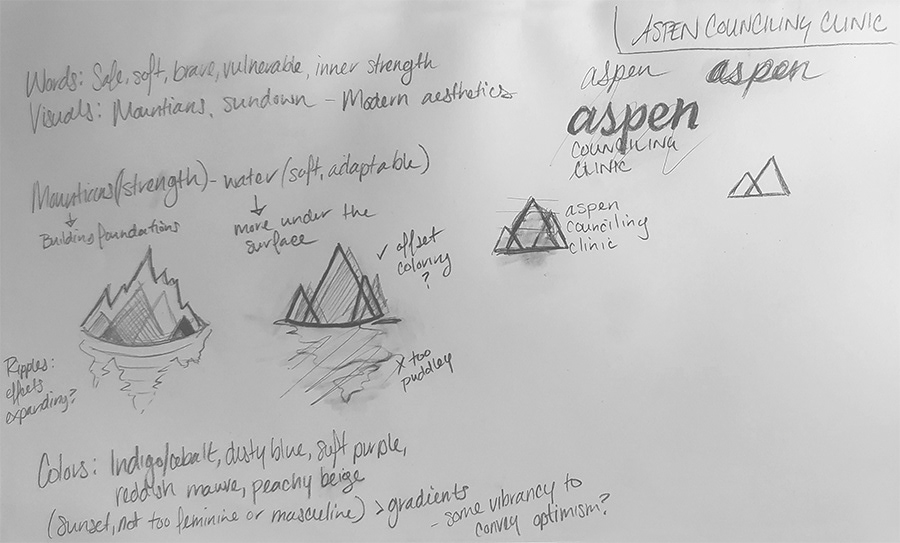 ASPEN COUNCILING CLINIC
Words: Safe, soft, brave, vulnerable, inner strength
Visuals: Mountians, sundown - Modern aesthetics
aspen
aspen
aspen
COUNCILING
CLINIC
Mountians (strength) - water (soft, adaptable)
Building foundations
more under the
surface
✓ offset
coloring
?
aspen
counciling
clinic
Ripples:
effects
expanding?
x too
puddley
Colors: Indigo/cobalt, dusty blue, soft purple,
reddish mauve, peachy beige
(sunset, not too feminine or masculine) > gradients
- some vibrancy to
convey optimism?